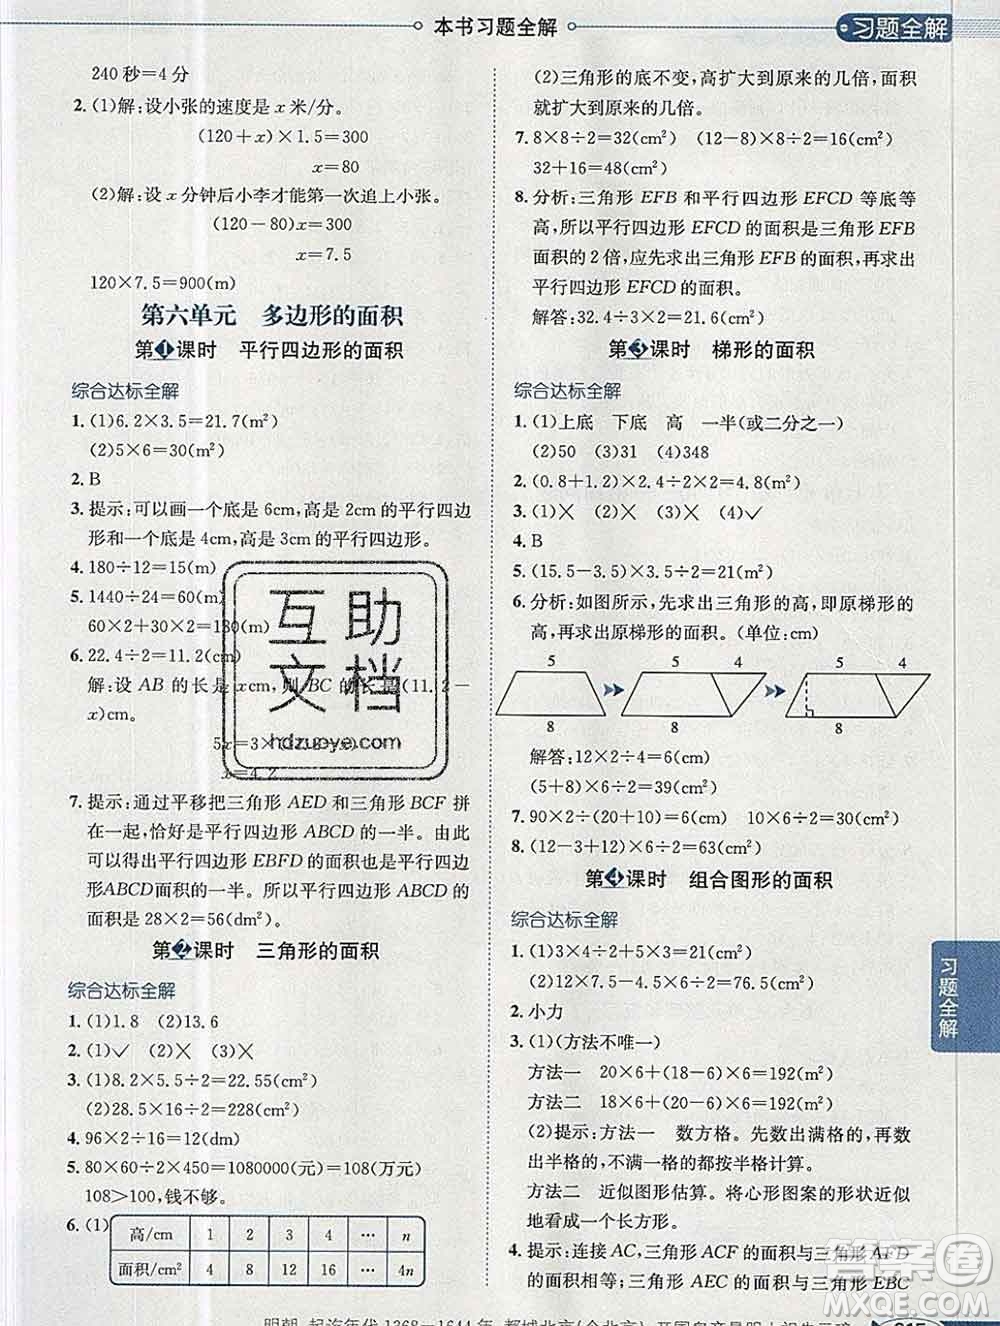 本书习题全解
习题全解
240秒=4分
2. (1)解:设小张的速度是x米/分。
(120+x)×1.5=300
x=80
(2)解:设x分钟后小李才能第一次追上小张。
(120-80)x=300
x=7.5
120×7.5=900(m)
第六单元 多边形的面积
第1课时 平行四边形的面积
综合达标全解
1. (1)6.2×3.5=21.7(m²)
(2)5×6=30(m²)
2. B
3. 提示:可以画一个底是6cm,高是2cm的平行四边
形和一个底是4cm,高是3cm的平行四边形。
4. 180÷12=15(m)
5. 1440÷24=60(m)
60×2+30×2=180(m)
6. 22.4÷2=11.2(cm)
解:设AB的长是xcm,则BC的长是(11.2-
x)cm。
5x=3×
x=4.2
7. 提示:通过平移把三角形AED和三角形BCF拼
在一起,恰好是平行四边形ABCD的一半。由此
可以得出平行四边形EBFD的面积也是平行四边
形ABCD面积的一半。所以平行四边形ABCD的
面积是28×2=56(dm²)
第2课时 三角形的面积
综合达标全解
1. (1)1.8 (2)13.6
2. (1)✓ (2)× (3)×
3. (1)8.2×5.5÷2=22.55(cm²)
(2)28.5×16÷2=228(cm²)
4. 96×2÷16=12(dm)
5. 80×60÷2×450=1080000(元)=108(万元)
108>100,钱不够。
6. (1)
高/cm 1 2 3 4 … n
面积/cm² 4 8 12 16 … 4n
(2)三角形的底不变,高扩大到原来的几倍,面积
就扩大到原来的几倍。
7. 8×8÷2=32(cm²) (12-8)×8÷2=16(cm²)
32+16=48(cm²)
8. 分析:三角形EFB和平行四边形EFCD等底等
高,所以平行四边形EFCD的面积是三角形EFB
面积的2倍,应先求出三角形EFB的面积,再求出
平行四边形EFCD的面积。
解答:32.4÷3×2=21.6(cm²)
第3课时 梯形的面积
综合达标全解
1. (1)上底 下底 高 一半(或二分之一)
(2)50 (3)31 (4)348
2. (0.8+1.6)×2.4÷2×2=4.8(m²)
3. (1)× (2)× (3)× (4)✓
4. B
5. (15.5-3.5)×3.5÷2=21(m²)
6. 分析:如图所示,先求出三角形的高,即原梯形的
高,再求出原梯形的面积。(单位:cm)
5 5 4 5 4
8 8 8
解答:12×2÷4=6(cm)
(5+8)×6÷2=39(cm²)
7. 90×2÷(20+10)=6(cm) 10×6÷2=30(cm²)
8. (12-3+12)×6÷2=63(cm²)
第4课时 组合图形的面积
综合达标全解
1. (1)3×4÷2+5×3=21(cm²)
(2)12×7.5-4.5×6÷2=76.5(cm²)
2. 小力
3. (1)(方法不唯一)
方法一 20×6+(18-6)×6=192(m²)
方法二 18×6+(20-6)×6=192(m²)
(2)提示:方法一 数方格。先数出满格的,再数
出半格的,不满一格的都按半格计算。
方法二 近似图形估算。将心形图案的形状近似
地看成一个长方形。
4. 提示:连接AC,三角形ACF的面积与三角形AFD
的面积相等;三角形AEC的面积与三角形EBC
习题全解
互助文档
hdzuoye.com
答案圈
MXQE.COM